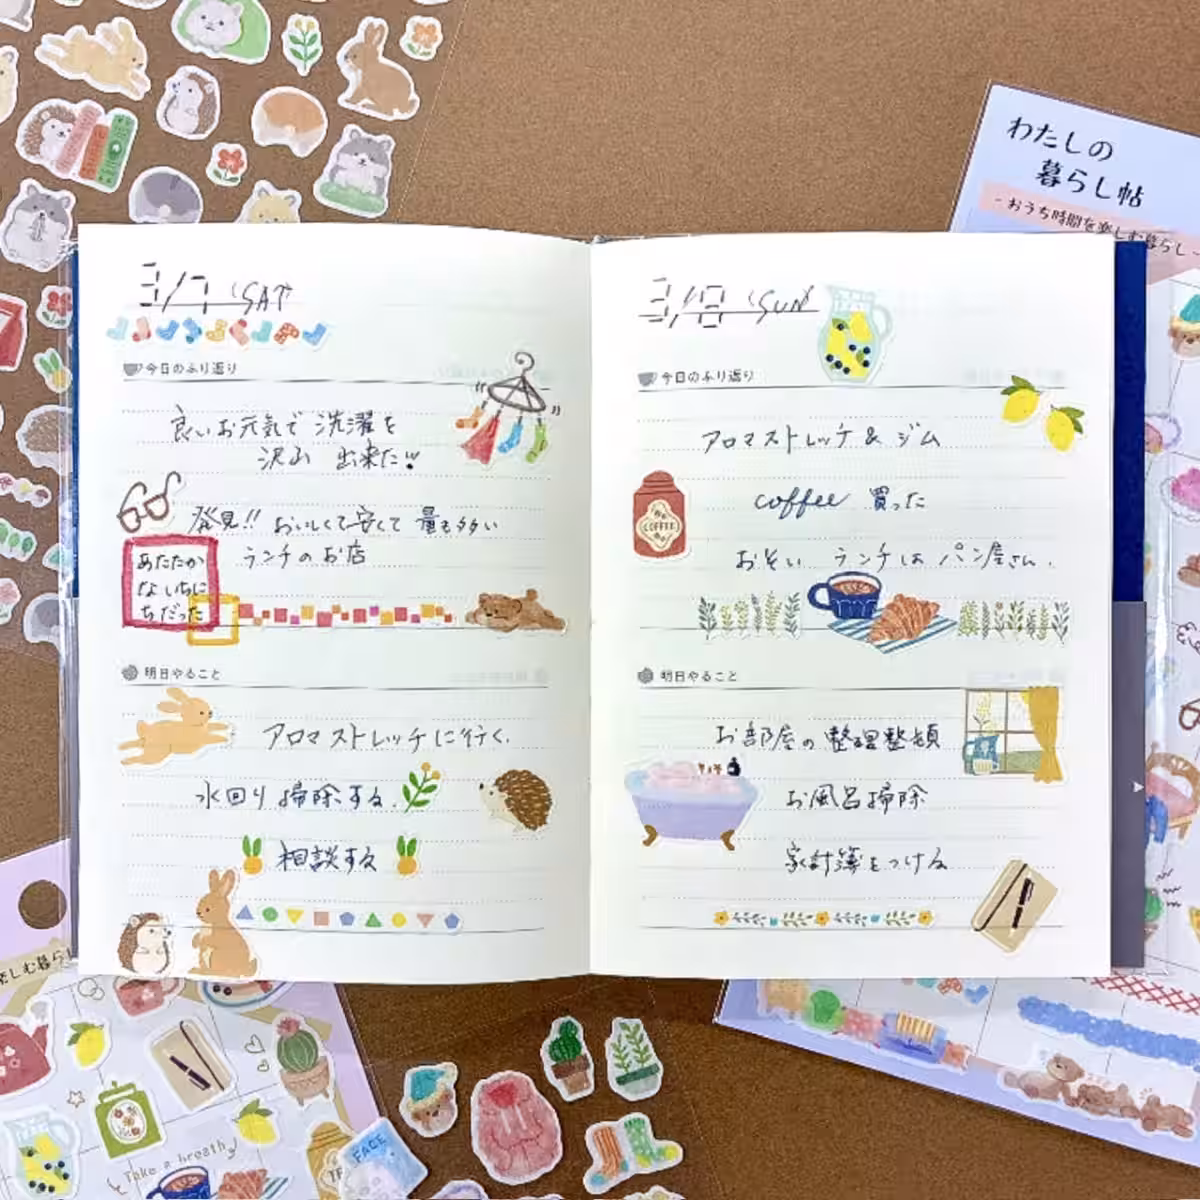 わたしの
暮らし帖
- おうち時間を楽しむ暮らし -
3/7 (SAT)
今日のふり返り
良いお天気で 洗濯を
沢山 出来た!!
発見!! おいしくて安くて 量も多い
ランチのお店
あたたか
な いちに
ちだった
明日やること
アロマストレッチに行く.
水回り掃除する.
相談する
3/8 (SUN)
今日のふり返り
アロマストレッチ & ジム
coffee 買った
COFFEE
おそい ランチは パン屋さん.
明日やること
お部屋の整理整頓
お風呂掃除
家計簿をつける
楽しむ暮らし
Take a breath
FACE